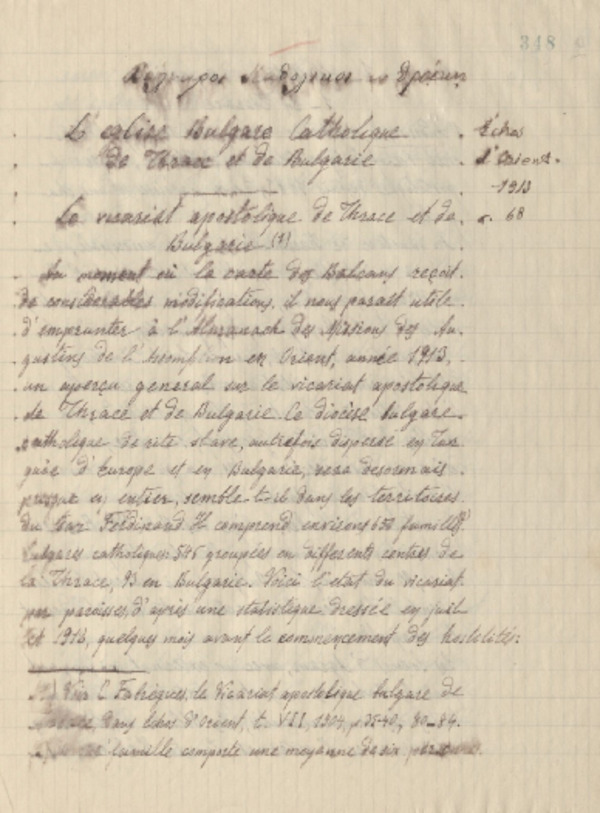 348
L'eglise Bulgare Catholique
de Thrace et de Bulgarie
Échos
d'Orient.
1913
68
Le vicariat apostolique de Thrace et de
Bulgarie (1)
Au moment où la carte des Balcans reçoit
de considerables modifications, il nous parait utile
d'emprunter à l'Almanach des Missions des Au
gustins de l'Assomption en Orient, année 1913,
un aperçu general sur le vicariat apostolique
de Thrace et de Bulgarie. Ce diocèse bulgare
catholique de rite slave, autrefois disperse en Tur
quie d'Europe et en Bulgarie, sera desormais
presque en entier, semble-t-il dans les territoires
du tsar Ferdinand. Il comprend environs 650 familles
bulgares catholiques: 545 groupées en differents centres de
la Thrace, 93 en Bulgarie. Voici l'etat du vicariat
par paroisses, d'après une statistique dressée en juil
let 1913, quelques mois avant le commencement des hostolités:
Voir C. Fabrègues, le Vicariat apostolique bulgare de
Thrace, dans Echos d'Orient, t. VII, 1904, p 35-40, 80-84.
famille comporte une moyenne de six personnes.